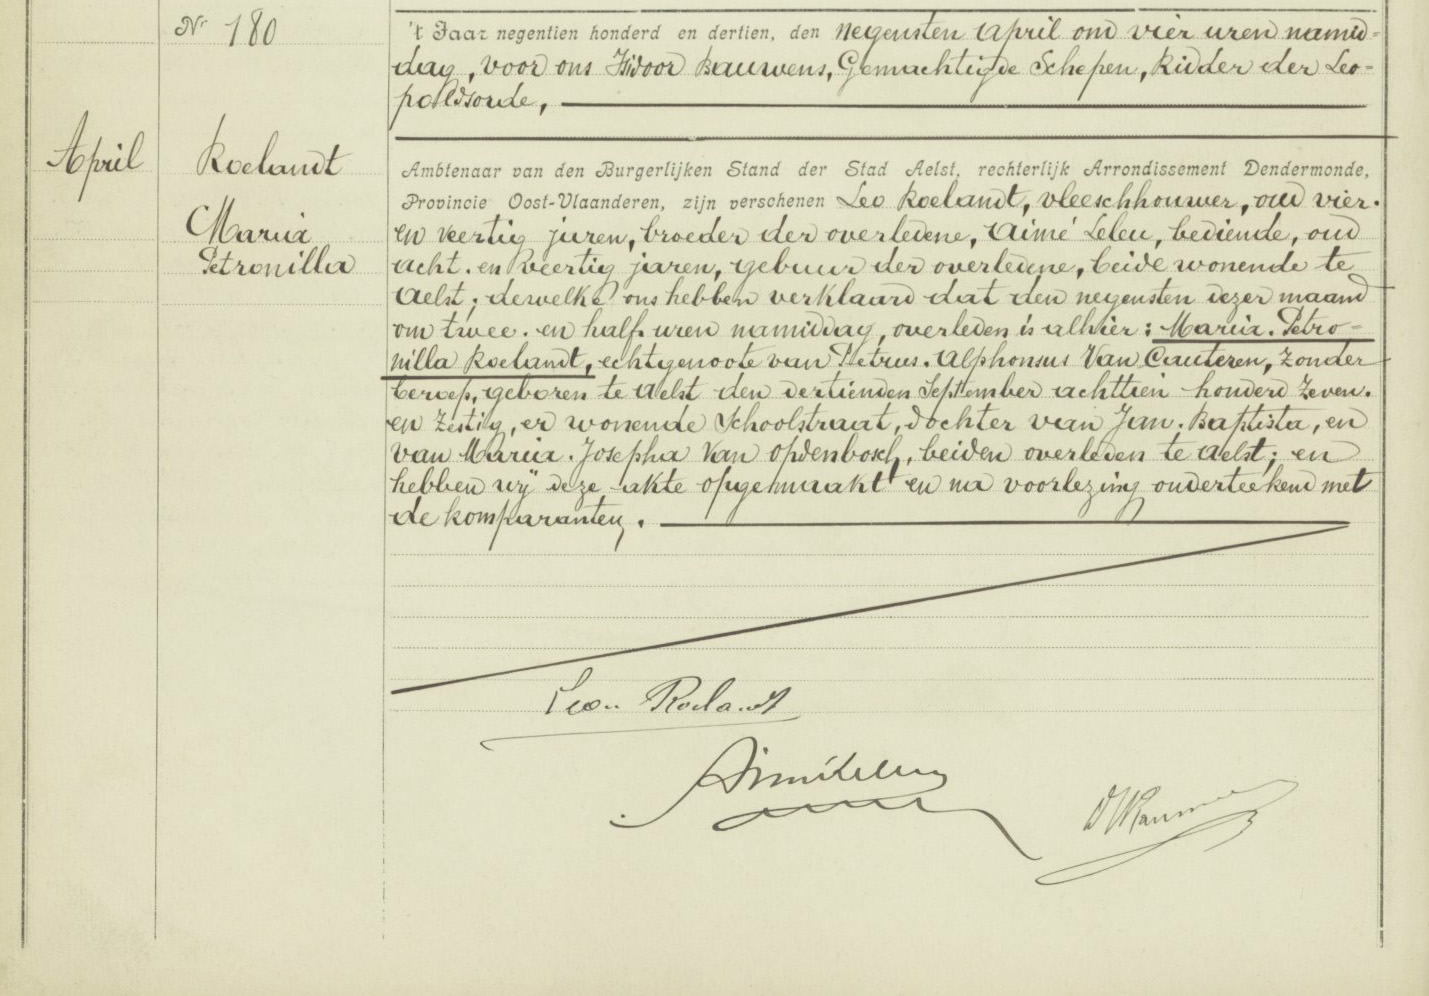 Nr 180
't Jaar negentien honderd en dertien, den negensten april om vier uren namid-
dag, voor ons Isidoor Bauwens, Gemachtigde Schepen, Ridder der Leo-
poldsorde,
April
Roelandt
Maria
Petronilla
Ambtenaar van den Burgerlijken Stand der Stad Aelst, rechterlijk Arrondissement Dendermonde,
Provincie Oost-Vlaanderen, zijn verschenen Leo Roelandt, vleeschhouwer, oud vier-
en veertig jaren, broeder der overledene, Aimé Leleu, bediende, oud
acht-en veertig jaren, gebuur der overledene, beide wonende te
Aelst; dewelke ons hebben verklaard dat den negensten dezer maand
om twee-en half uren namiddag, overleden is alhier: Maria-Petro-
nilla Roelandt, echtgenoote van Petrus-Alphonsus Van Cauteren, zonder
beroep, geboren te Aelst den dertienden September achttien honderd zeven-
en zestig, er wonende Schoolstraat, dochter van Jan-Baptista, en
van Maria-Josepha Van Opdenbosch, beiden overleden te Aelst; en
hebben wij deze akte opgemaakt en na voorlezing onderteekend met
de komparanten.
Leon Roelandt